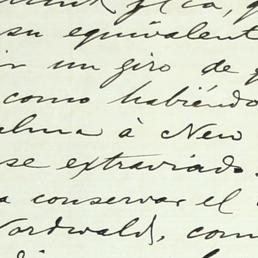 su equivalent
un giro de
como habiéndo
alma á New
se extraviado.
conservar el
Nordwald, com